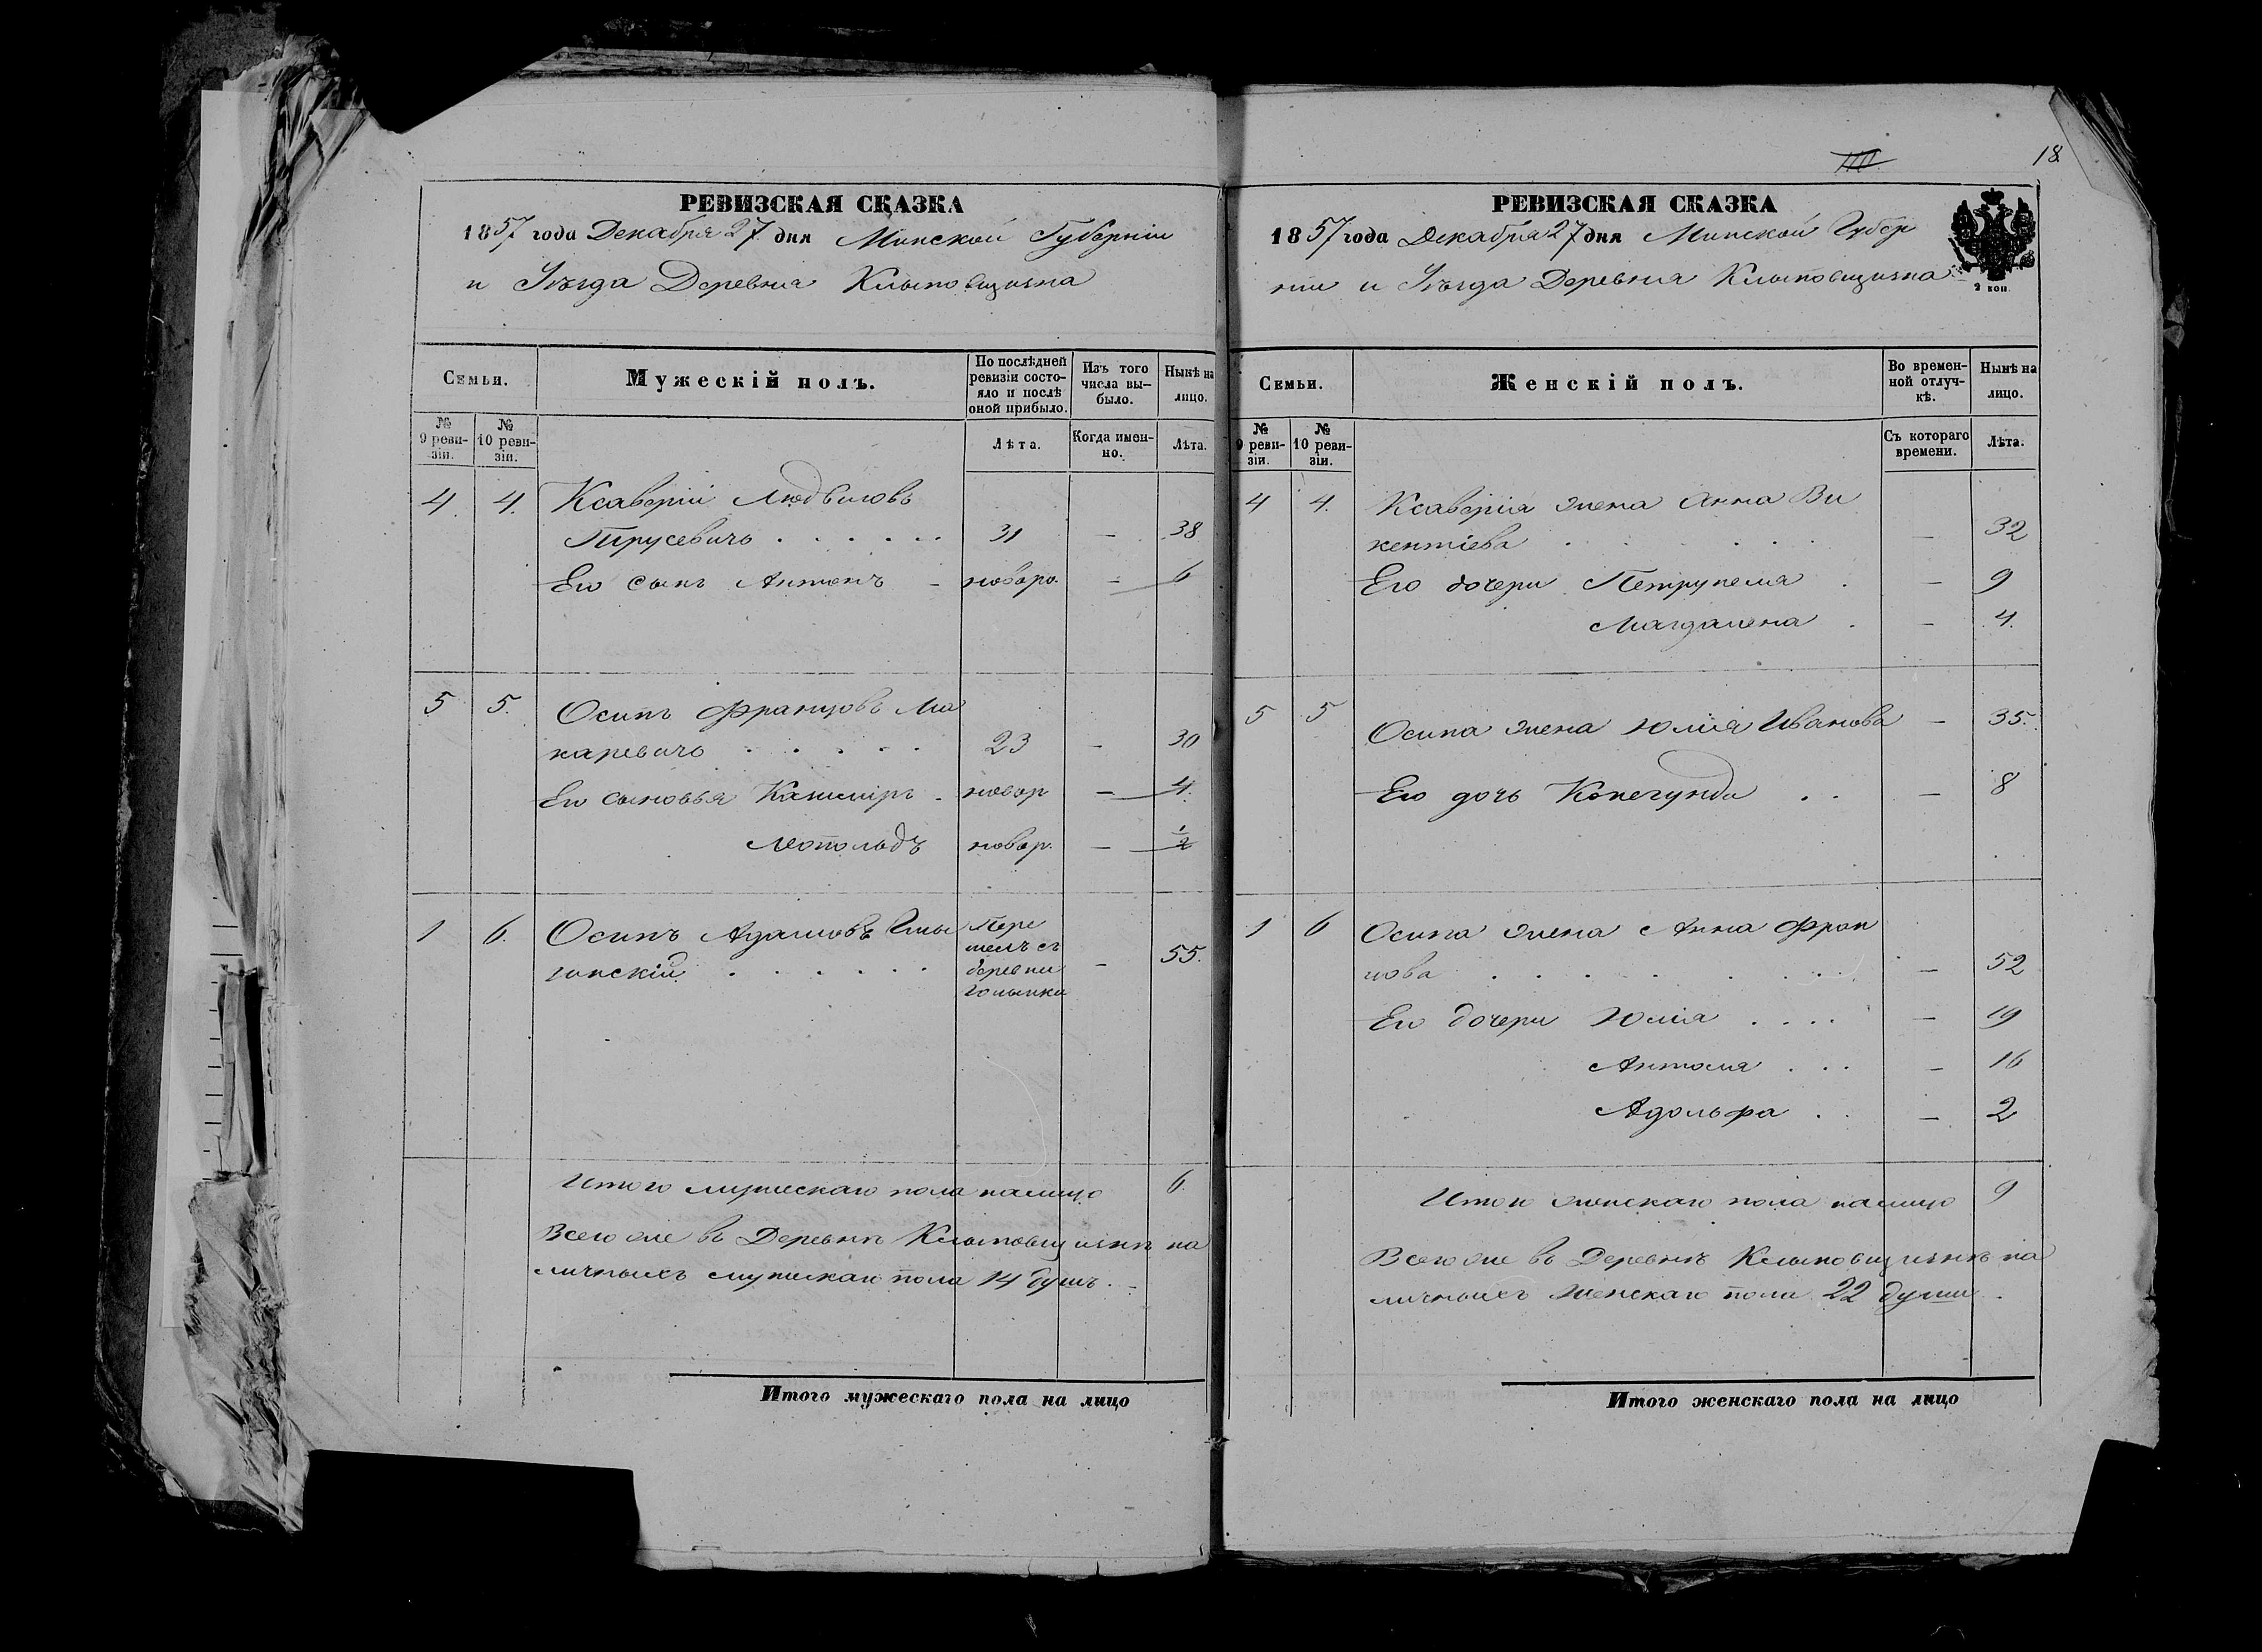 18
РЕВИЗСКАЯ СКАЗКА
1857 года Декабря 27 дня Минской Губерніи
и Уѣзда Деревня
Семьи.
Мужескій полъ.
По послѣдней ревизіи состояло и послѣ оной прибыло.
Изъ того числа вы-было.
Нынѣ на лицо.
№ 9 реви-зіи.
№ 10 реви-зіи.
Лѣта.
Когда имен-но.
Лѣта.
4. 4. Ксаверій Людвиковъ
31 — 38
Его сынъ Антонъ - новоро. — 6
5 5. Осипъ Францовъ Ма
каревичъ . . . . . 23 — 30
Его сыновья Казимиръ . новор — 4.
Леопольдъ новор. — 1/2
1 6. Осипъ Адамовъ
Пере
шелъ съ
деревни
55.
Итого мужескаго пола налицо 6
Всего же въ Деревнѣ на
личныхъ мужскаго пола 14 душъ. —
Итого мужескаго пола на лицо
РЕВИЗСКАЯ СКАЗКА
1857 года Декабря 27 дня Минской Губер
ніи и Уѣзда Деревня
2 коп.
Семьи.
Женскій полъ.
Во времен-ной отлуч-кѣ.
Нынѣ на лицо.
№ 9 реви-зіи.
№ 10 реви-зіи.
Съ котораго времени.
Лѣта.
4 4. Ксаверія жена Анна Ви
кентіева . . . . — 32
Его дочери Петрунеля . — 9
Магдалена . — 4.
5 5 Осипа жена Юлія Иванова — 35.
Его дочь Конегунда . . — 8
1 6 Осипа жена Анна Фран
цова . . . . . . — 52
Его дочери Юлія . . . . — 19
Антоля . . . — 16
Адольфа . . — 2
Итого женскаго пола налицо 9
Всего же въ Деревнѣ на
личныхъ женскаго пола 22 души .
Итого женскаго пола на лицо